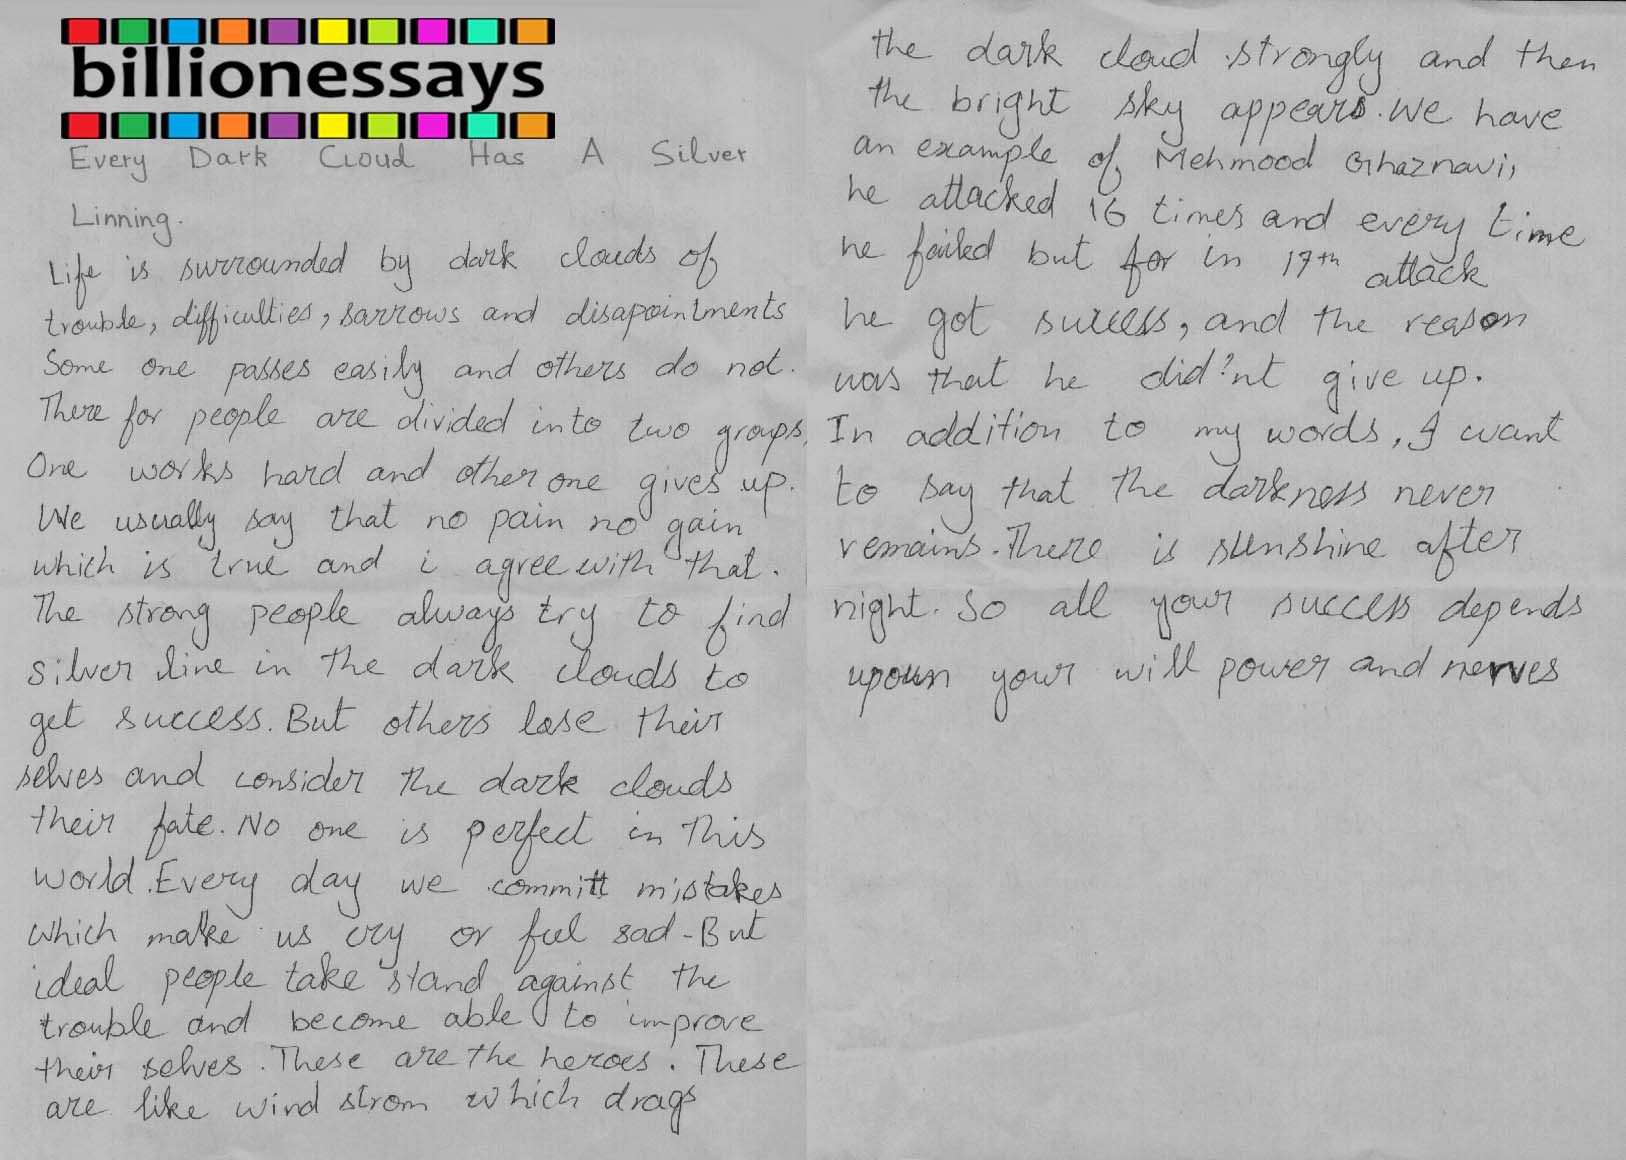 billionessays
Every Dark Cloud Has A Silver
Linning.
Life is surrounded by dark clouds of
trouble, difficulties, sarrows and disapointments
Some one passes easily and others do not.
There for people are divided into two groups,
One works hard and other one gives up.
We usually say that no pain no gain
which is true and i agree with that.
The strong people always try to find
silver line in the dark clouds to
get success. But others lose their
selves and consider the dark clouds
their fate. No one is perfect in this
world. Every day we committ mistakes
which make us cry or feel sad - But
ideal people take stand against the
trouble and become able to improve
their selves. These are the heroes. These
are like wind strom which drags
the dark cloud strongly and then
the bright sky appears. We have
an example of Mehmood Ghaznavi,
he attacked 16 times and every time
he failed but for in 17th attack
he got success, and the reason
was that he did'nt give up.
In addition to my words, I want
to say that the darkness never
remains. There is sunshine after
night. So all your success depends
upoun your will power and nerves